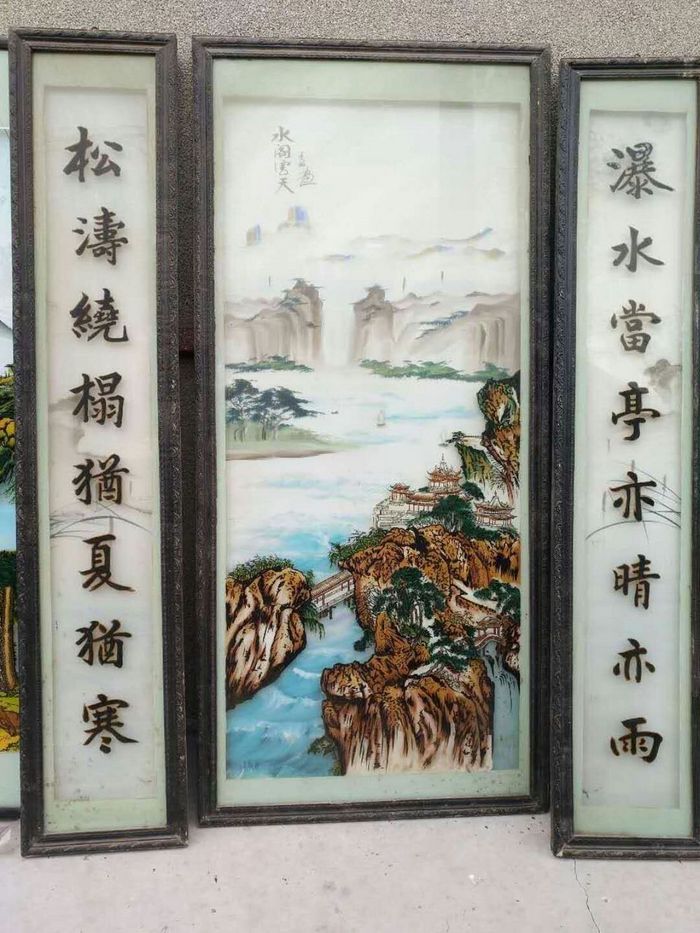 瀑水當亭亦晴亦雨
水閣雲天
松濤繞榻猶夏猶寒